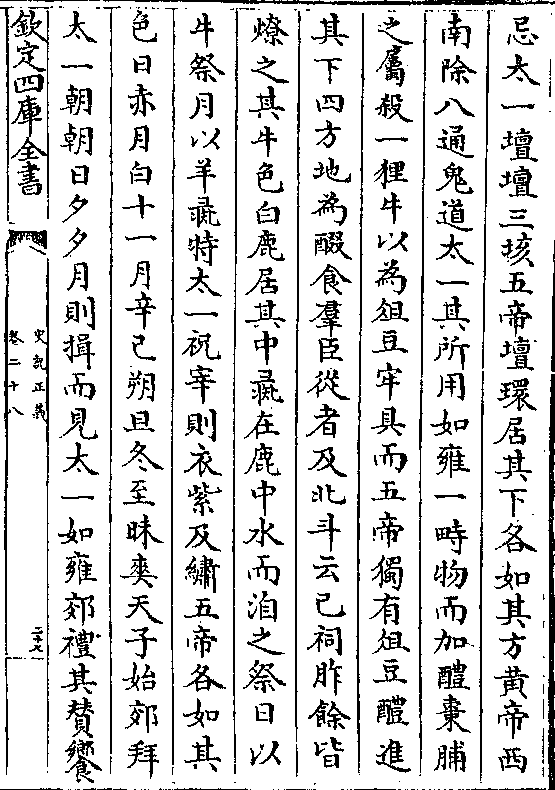 忌太一壇壇三垓五帝壇環居其下各如其方黄帝西
南除八通鬼道太一其所用如雍一畤物而加醴棗脯
之屬殺一狸牛以為俎豆牢具而五帝獨有俎豆醴進
其下四方地為醊食羣臣從者及北斗云已祠胙餘皆
燎之其牛色白鹿居其中彘在鹿中水而洎之祭日以
牛祭月以羊彘特太一祝宰則衣紫及繡五帝各如其
色日赤月白十一月辛已朔旦冬至昧爽天子始郊拜
太一朝朝日夕夕月則揖而見太一如雍郊禮其賛饗
欽定四庫全書
史記正義
卷二十八
二十七